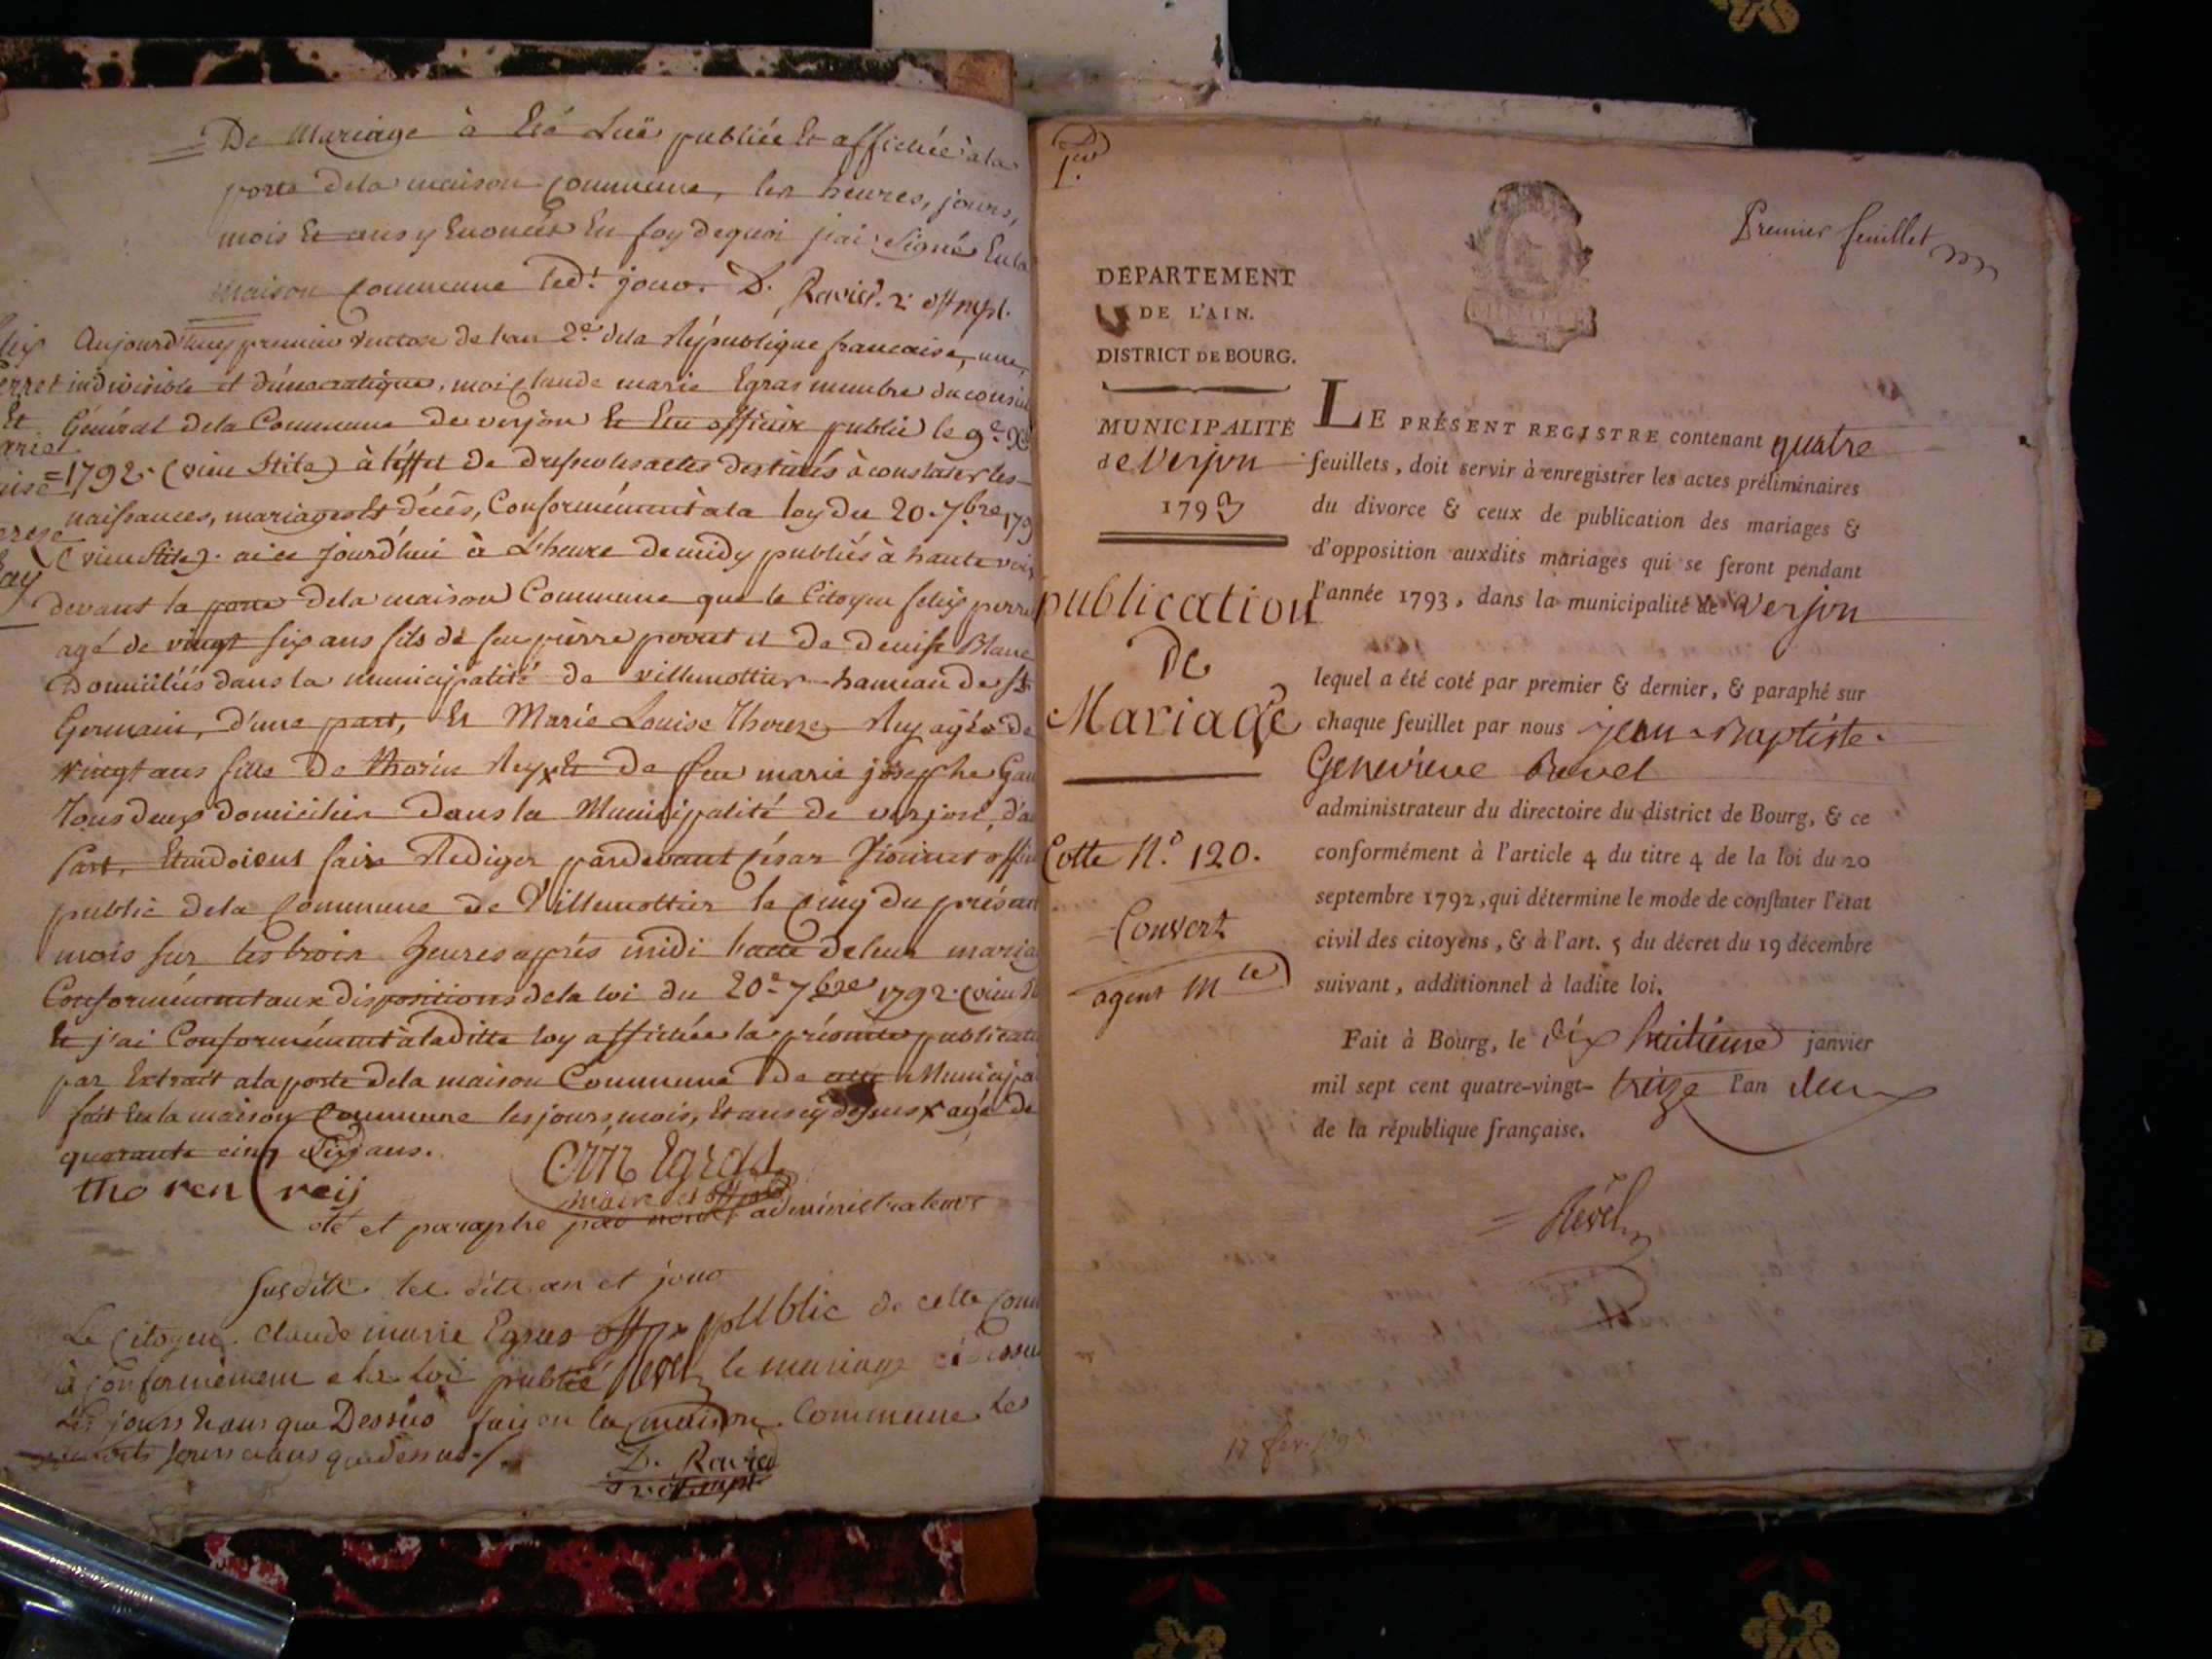 De Mariage à Eté Luë publiée Et affichée à la
porte de la maison commune, les heures, jours,
mois Et ans y Enoncés En foy de quoi j'ai Signé En la
maison commune led.t jour. D. Ravier. 2.
Aujourd'huy premier de l'an 2.e de la République francaise, une,
indivisible et démocratique, moi Claude marie Egras membre du
Général de la Commune de verjon Et Elu officier public le 9.e
=1792 (vieu Stile) à l'effet de dresser les actes destinés à constater les
naissances, mariages Et décès, Conformément à la loy du 20. 7.bre 179
(vieu Stile). ai ce jourd'hui à L'heure de midy publiés à haute voix
devant la porte de la maison Commune que le Citoyen felix perre
agé de vingt six ans fils de feu pierre perret et de denise Blanc
Domiciliés dans la municipalité de villemottier hameau de St
Germain, d'une part, Et Marie Louise Therese Rey agée de
vingt ans fille de thorin Rey x Et de feu marie josephe
Tous deux domiciliés dans la Municipalité de verjon,
part, Entendoient faire Rediger pardevant César
public de la Commune de Villemottier le cinq du présent
mois sur les trois heures après midi l'acte de leur
Conformément aux dispositions de la loi du 20.e 7bre 1792. (vieu
Et j'ai Conformément à la ditte loy affichée la présente
par Extrait a la porte de la maison Commune De cette
fait En la maison Commune les jours, mois, Et ans cy dessus x agé de
quarante cinq ans.
thoren reij
C m Egras
maire et
coté et paraphé par nous administrateur
Susdit les dits an et jour
Le Citoyen. Claude marie Egras public de cette
à Conformement a la Loi publié Revel le mariage ci Dessus
Les jours Et ans que Dessus fait en la maison Commune Les
jours et ans que dessus ./.
D. Ravier
P.er
1.
Premier feuillet
MINUTE
DÉPARTEMENT
DE L'AIN.
DISTRICT DE BOURG.
MUNICIPALITÉ
de Verjon
1793
publication
De
Mariage
Cotte N.o 120.
Convert
agent M le
LE PRÉSENT REGISTRE contenant quatre
feuillets, doit servir à enregistrer les actes préliminaires
du divorce & ceux de publication des mariages &
d'opposition auxdits mariages qui se feront pendant
l'année 1793, dans la municipalité de Verjon
lequel a été coté par premier & dernier, & paraphé sur
chaque feuillet par nous jean Baptiste
Genevieve Revel
administrateur du directoire du district de Bourg, & ce
conformément à l'article 4 du titre 4 de la loi du 20
septembre 1792, qui détermine le mode de constater l'état
civil des citoyens, & à l'art. 5 du décret du 19 décembre
suivant, additionnel à ladite loi.
Fait à Bourg, le dix huitieme janvier
mil sept cent quatre-vingt- treize l'an deux
de la république française.
Revel